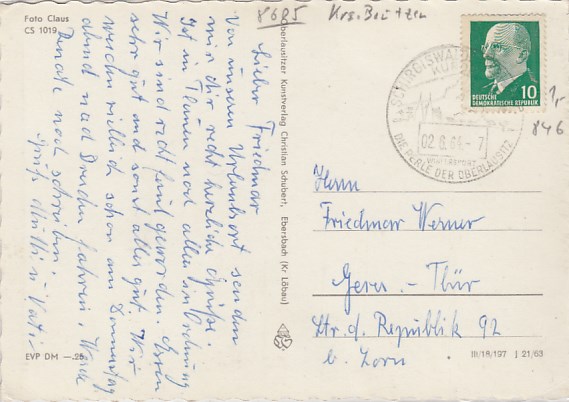 Foto Claus
CS 1019
8605
Krs. Bautzen
Lieber Friedmar
Von unserem Urlaubsort senden
wir dir recht herzliche Grüße.
Ist in Ordnung
Wir sind recht faul geworden. Essen
sehr gut und sonst alles gut. Wir
werden schon am Donnerstag
abend nach Dresden fahren. Werde
Renate noch schreiben.
Grüße Mutti u. Vati
EVP DM —.25
Oberlausitzer Kunstverlag Christian Schubert, Ebersbach (Kr Löbau)
SCHIRGISWALDE
02.6.64.- 7
DIE PERLE DER OBERLAUSITZ
DEUTSCHE
DEMOKRATISCHE REPUBLIK
10
1,-
846
Herrn
Friedmar Werner
Gera - Thür
Str. d. Republik 92
b. Zorn
III/18/197 J 21/63